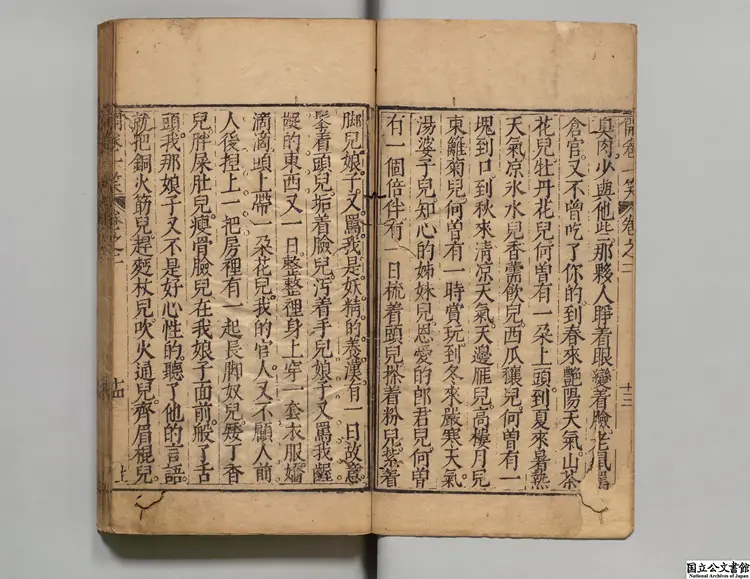 開卷一笑 卷之二 十三
臭肉少與他些那夥人睜着眼變着臉老鼠
倉官又不曾吃了你的到春來艷陽天氣山茶
花兒牡丹花兒何曽有一朶上頭到夏來暑熱
天氣凉氷水兒香薷飲兒西瓜穰兒何曽有一
塊到口到秋來清凉天氣天邊雁兒高樓月兒
東籬菊兒何曽有一時賞玩到冬來嚴寒天氣
湯婆子兒知心的姊妹兒恩愛的郎君兒何曽
有一個倍伴有一日梳着頭兒搽着粉兒紮着
脚兒娘子又罵我是妖精的養漢有一日故意
鬅着頭兒垢着臉兒汚着手兒娘子又罵我齷
齪的東西又一日整整裡身上穿一套衣服嬌
滴滴頭上帶一朶花兒我的官人又不顧人前
人後揑上一把房裡有一起長脚奴兒矮丫香
兒胖屎肚兒瘦骨臉兒在我娘子面前般了舌
頭我那娘子又不是好心性的聽了他的言語
就把銅火筋兒趕麵杖兒吹火通兒齊眉棍兒
開卷一笑 卷之二 十四 上
国立公文書館
National Archives of Japan